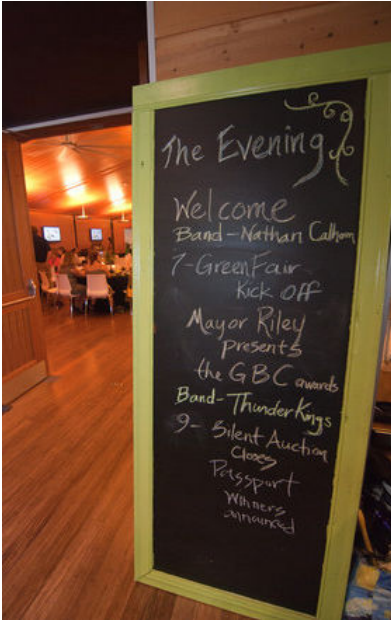 The Evening
Welcome
Band-Nathan Calhoun
7-GreenFair
Kick Off
Mayor Riley
presents
the GBC awards
Band-ThunderKings
9- Silent Auction
Closes
Passport
Winners
announced